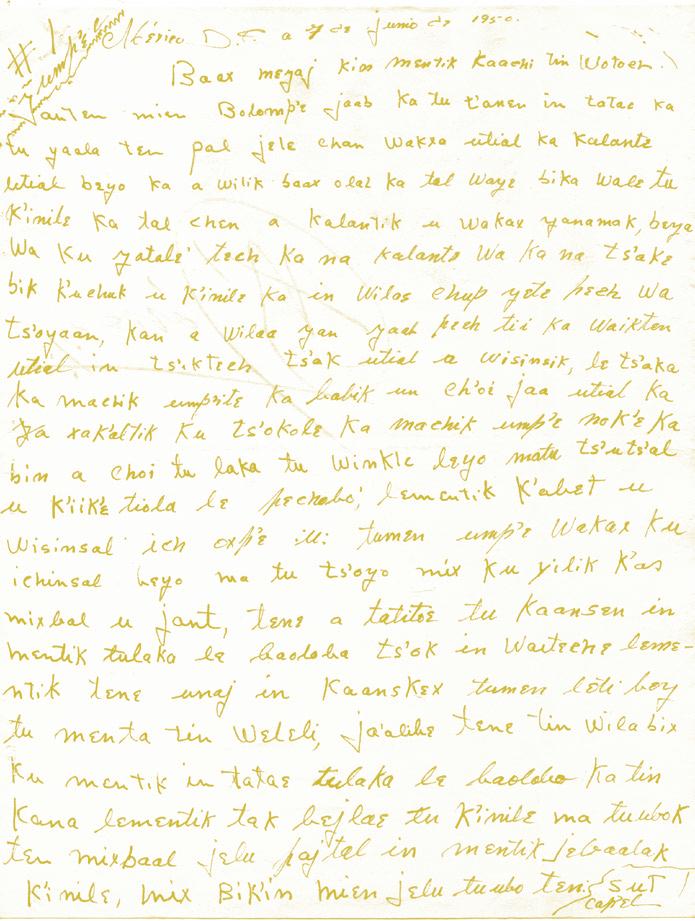 # 1
Jump'el
México D.F. a 7 de junio de 1950.
Baax meyaj kin mentik Kaachi tin Wotoch.
Janten mien Bolomp'e jaab ka tu t'anen in tatae ka
tu yaala ten pal jele chan wakxo utial ka kalante
utial beyo ka a wilik baax olal ka tal waye bika wale tu
K'inile ka tal chen a kalantik u wakax yanamak, beya
Wa Ku yatale' tech Ka na kalante Wa Ka na ts'ake
bik k'uchuk u K'inile Ka in Wilae chup yete pech wa
ts'oyaan, kan a wilae yan yaab pech tii ka waikten
utial in ts'iktech ts'ak utial a wisinsik, le ts'aka
ka machik ump'ite ka babik un ch'oi jaa utial ka
xakaltik Ku ts'okole Ka machik ump'e nok'e ka
bin a choi tu laka tu Winkle beyo matu ts'uts'al
u K'iik'e tiola le pechobo', lementik K'abet u
Wisinsal ich oxp'e ili: tumen ump'e Wakax Ku
ichinsal beyo ma tu ts'oyo mix Ku yilik K'as
mixbal u jant, tene a tatitoe tu Kaansen in
mentik tulaka le baaloba ts'ok in Waiteche leme-
ntik tene unaj in Kaanskex tumen leti boy
tu menta tin Weteli, ja'alibe tene tin wila bix
Ku mentik in tatae tulaka le baalobo Ka tin
Kana lementik tak bejlae tu K'inile ma tuubok
ten mixbaal jelu pajtal in mentik jebaalak
K'inile, mix Bik'in mien jelu tuubo ten: SUT!
cap'el